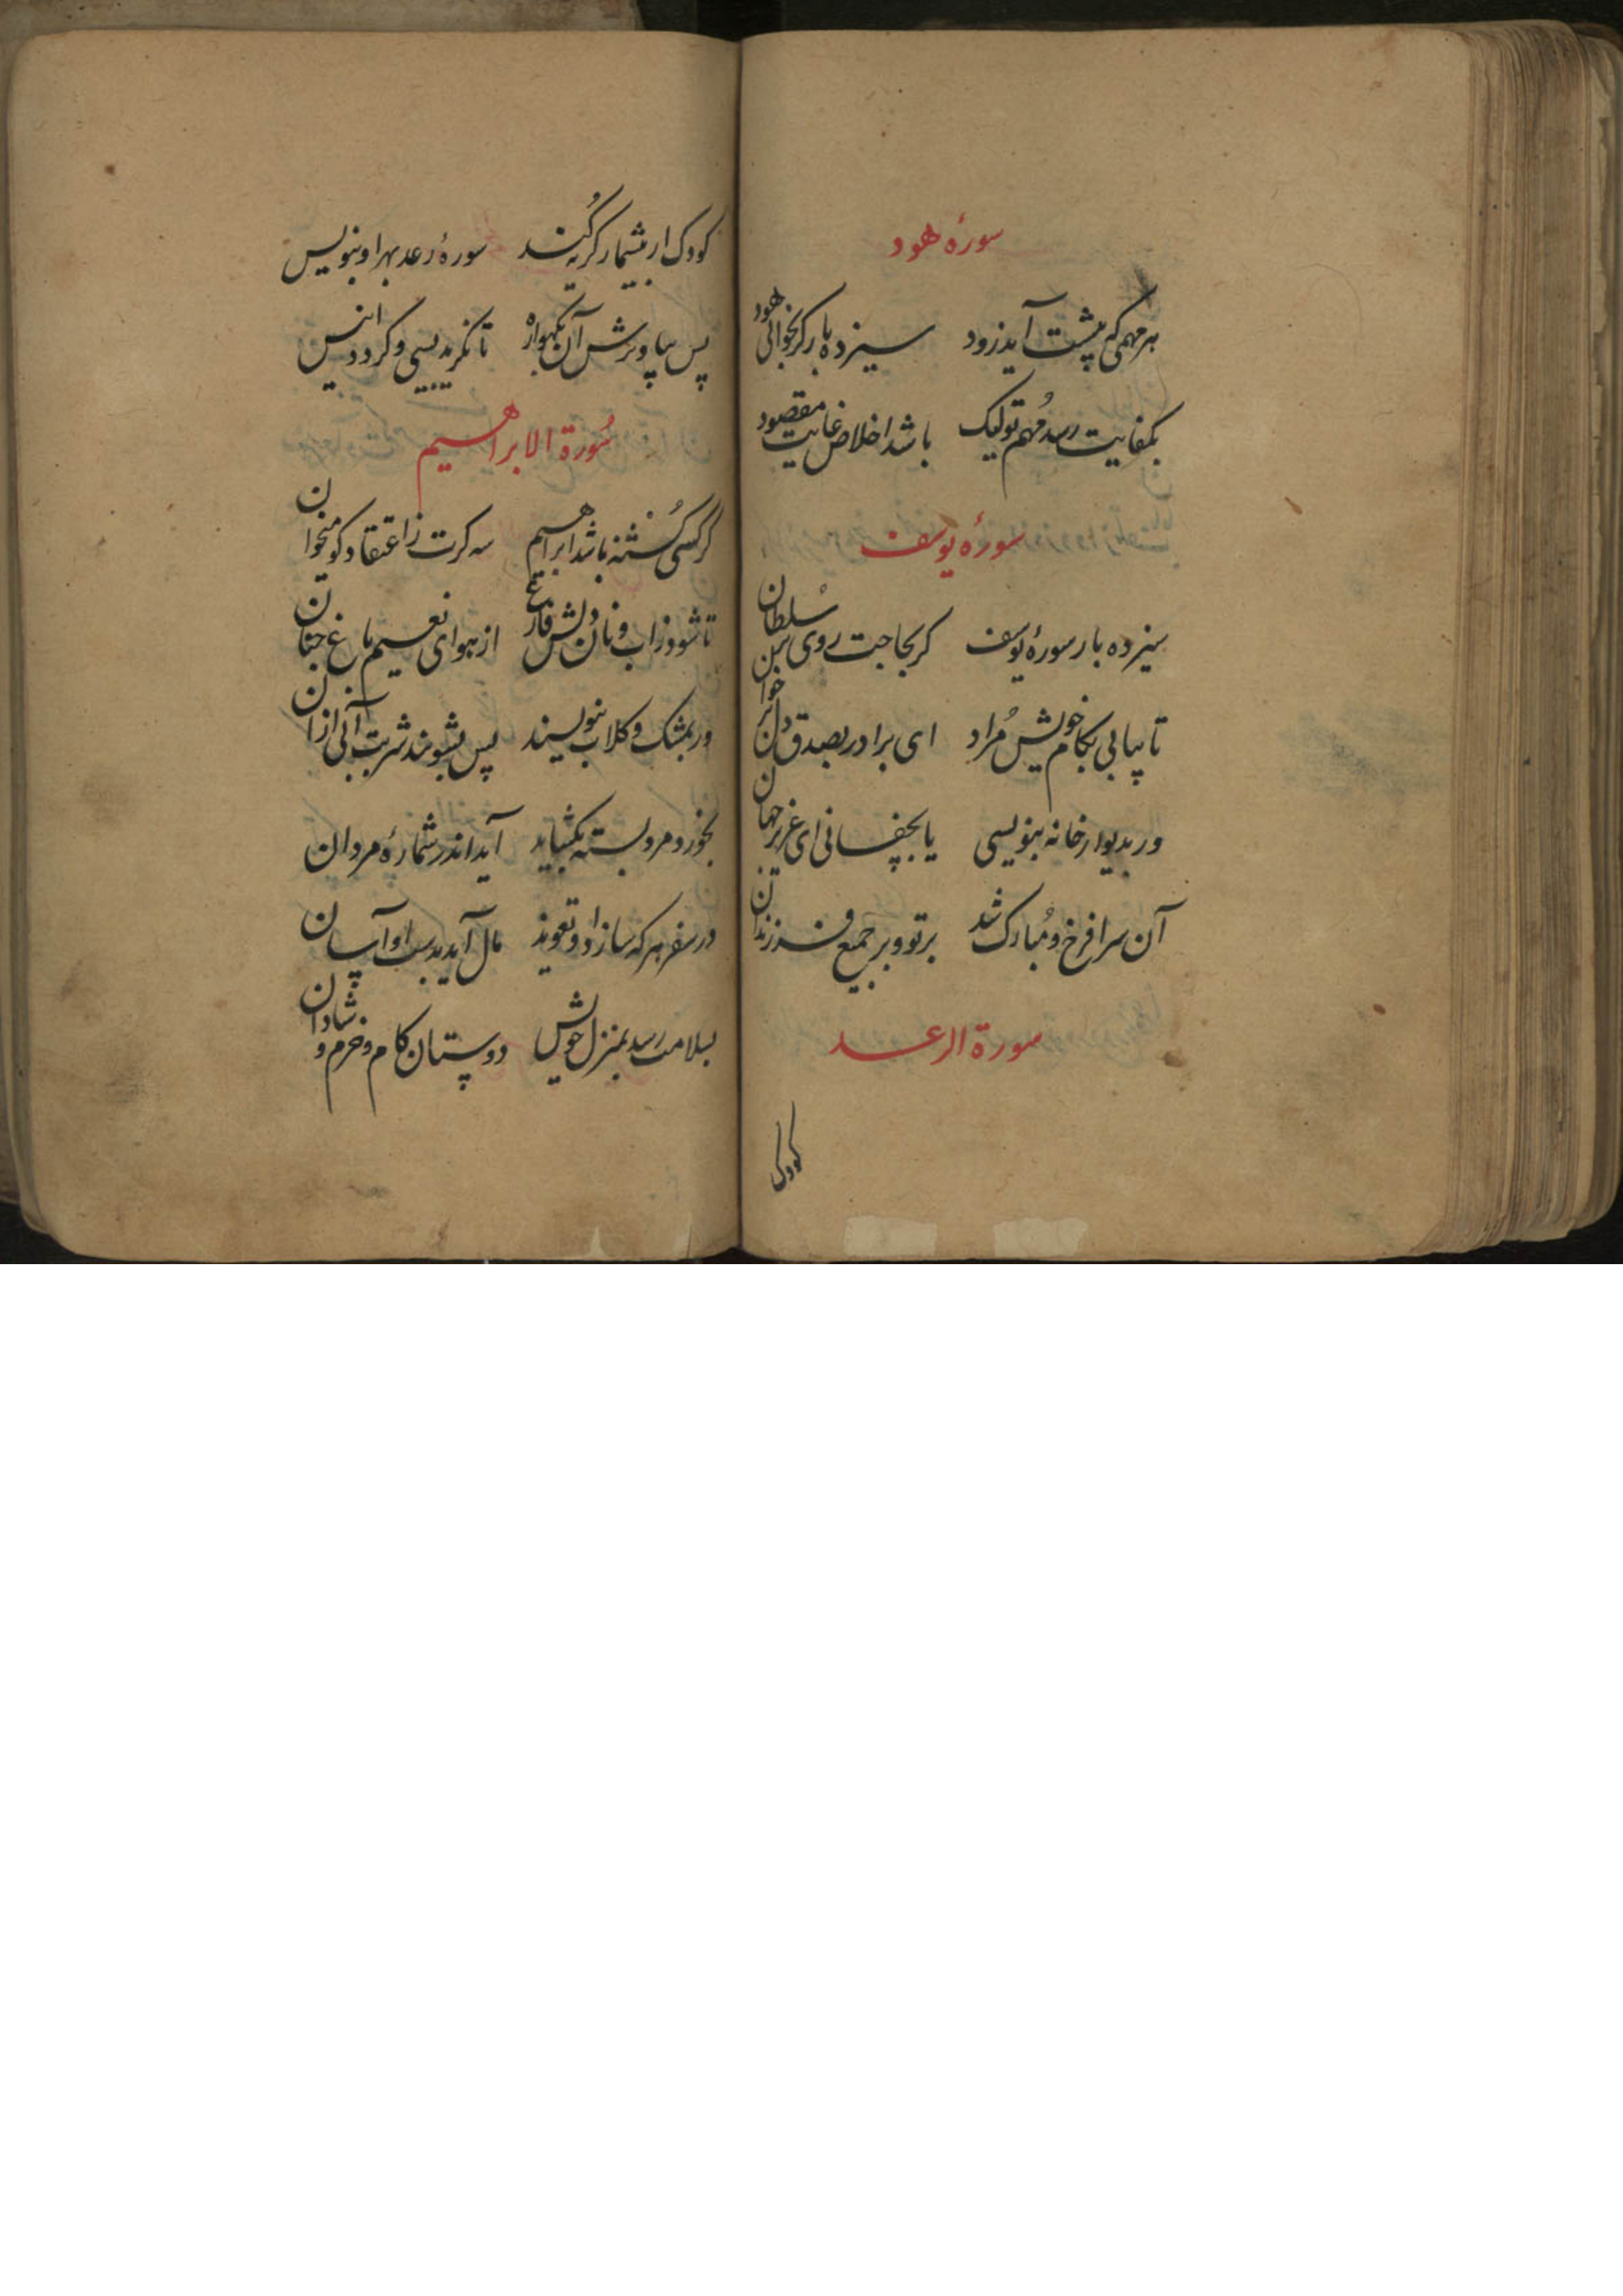 سورهٔ هود
هر مهمی که پیشت آید زود سیزده بار کر بخوانی هود
بکفایت رسد مُهم تو لیک باشد اخلاص غایت مقصود
سورهٔ یوسف
سیزده بار سورهٔ یوسف کر بحاجت روی بر سُلطان خوان
تا بیابی بکام خویش مُراد ای برادر بصدق دل بر خوان
ور بدیوار خانه بنویسی یا بچفسانی ای عزیز جهان
آن سرا فرخ و مُبارک شد بر تو و بر جمیع فرزندان
سورة الرعد
کودک
کودک ار بیشمار کریه کُند سورهٔ رعد بهر او بنویس
پس بیاویزش آن بکهواره تا نکرید بسی و کردد انیس
سُورة الابراهیم
کر کسی کُشنه باشد ابراهیم سه کرت ز اعتقاد کو میخوان
تا شود ز اب و نان دلش فارغ از هوای نعیم باغ جنان
ور بمشک و کلاب بنویسند پس بشویند شربت آبی از ان
بخورد مرد بسته بکشاید آید اندر شمارهٔ مردان
در سفر هر که سازد او تعویذ مال آید بدست او آسان
بسلامت رسد بمنزل خویش دوستان کام و خرم و شادان